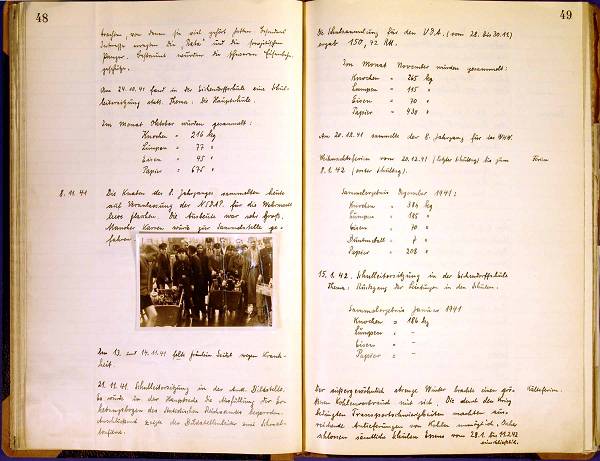 48
brachten, von denen sie viel gehört hatten. Besonders
Interesse erregten die „Rata" und die sowjetischen
Panzer. Bestaunt wurden die schweren Eisenbahn-
geschütze.
Am 24.10.41 fand in der Eichendorffschule eine Schul-
leitersitzung statt. Thema: Die Hauptschule.
Im Monat Oktober wurden gesammelt:
Knochen = 216 kg
Lumpen = 77 "
Eisen = 45 "
Papier = 675 "
8.11.41 Die Knaben des 8. Jahrganges sammelten heute
auf Veranlassung der NSDAP. für die Wehrmacht
leere Flaschen. Die Ausbeute war sehr groß.
Mancher Karren wurde zur Sammelstelle ge-
fahren.
Am 13. und 14.11.41 fehlte Fräulein wegen Krank-
heit.
21.11.41. Schulleitersitzung in der Bildstelle.
Es wurde in der Hauptsache die Ausfüllung der Er-
hebungsbogen des Statistischen Reichsamtes besprochen.
Anschließend zeigte der Bildstellenleiter
49
Die Schulsammlung für den V.D.A. (vom 28. bis 30.11.)
ergab 150,42 RM.
Im Monat November wurden gesammelt:
Knochen = 265 kg
Lumpen = 115 "
Eisen = 70 "
Papier = 430 "
Am 20.12.41 sammelte der 8. Jahrgang für das WHW.
Weihnachtsferien vom 20.12.41 (letzter Schultag) bis zum Ferien
8.1.42 (erster Schultag).
Sammelergebnis Dezember 1941:
Knochen = 384 kg
Lumpen = 185 "
Eisen = 70 "
Buntmetall = 7 "
Papier = 208 "
15.1.42. Schulleitersitzung in der Eichendorffschule
Thema: Rückgang der Leistungen in den Schulen.
Sammelergebnis Januar 1941
Knochen = 186 kg
Lumpen = –
Eisen = –
Papier = –
Der außergewöhnlich strenge Winter brachte einen grö- Kälteferien.
ßeren Kohlenverbrauch mit sich. Die durch den Krieg
bedingten Transportschwierigkeiten machten aus-
reichende Anlieferungen von Kohlen unmöglich. Daher
schlossen sämtliche Schulen vom 28.1. bis 15.2.42
einschließlich.